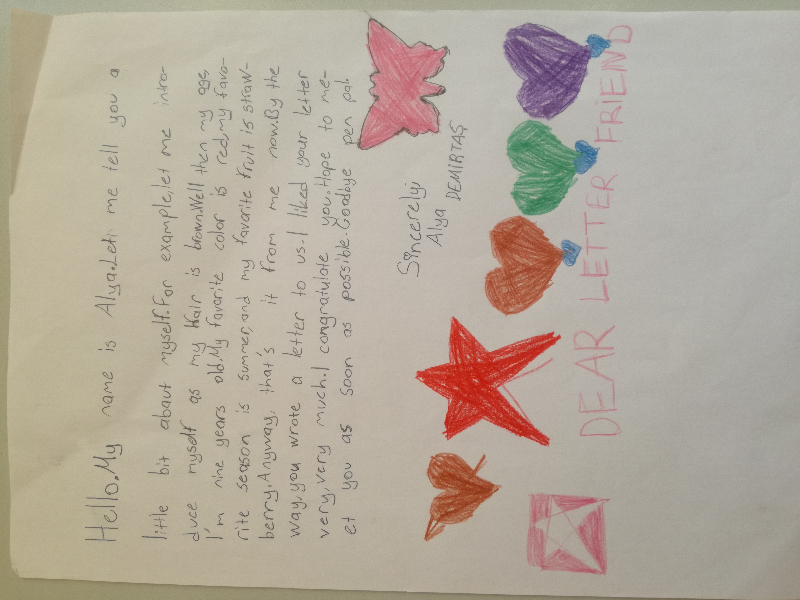 Hello.My name is Alya.Leti me tell you a
little bit abaut myself.For example,let me intro-
duce myself as my hair is brown.Well then my ags
I'm nine years old.My favorite color is red,my favo-
rite season is summer,and my favorite fruit is straw-
berry.Anyway, that's it from me now.By the
way,you wrote a letter to us.I liked your letter
very,very much.I congratulate you.Hope to me-
et you as soon as possible.Goodbye pen pal.
Sincerely;
Alya
DEMIRTAŞ
DEAR LETTER FRIEND